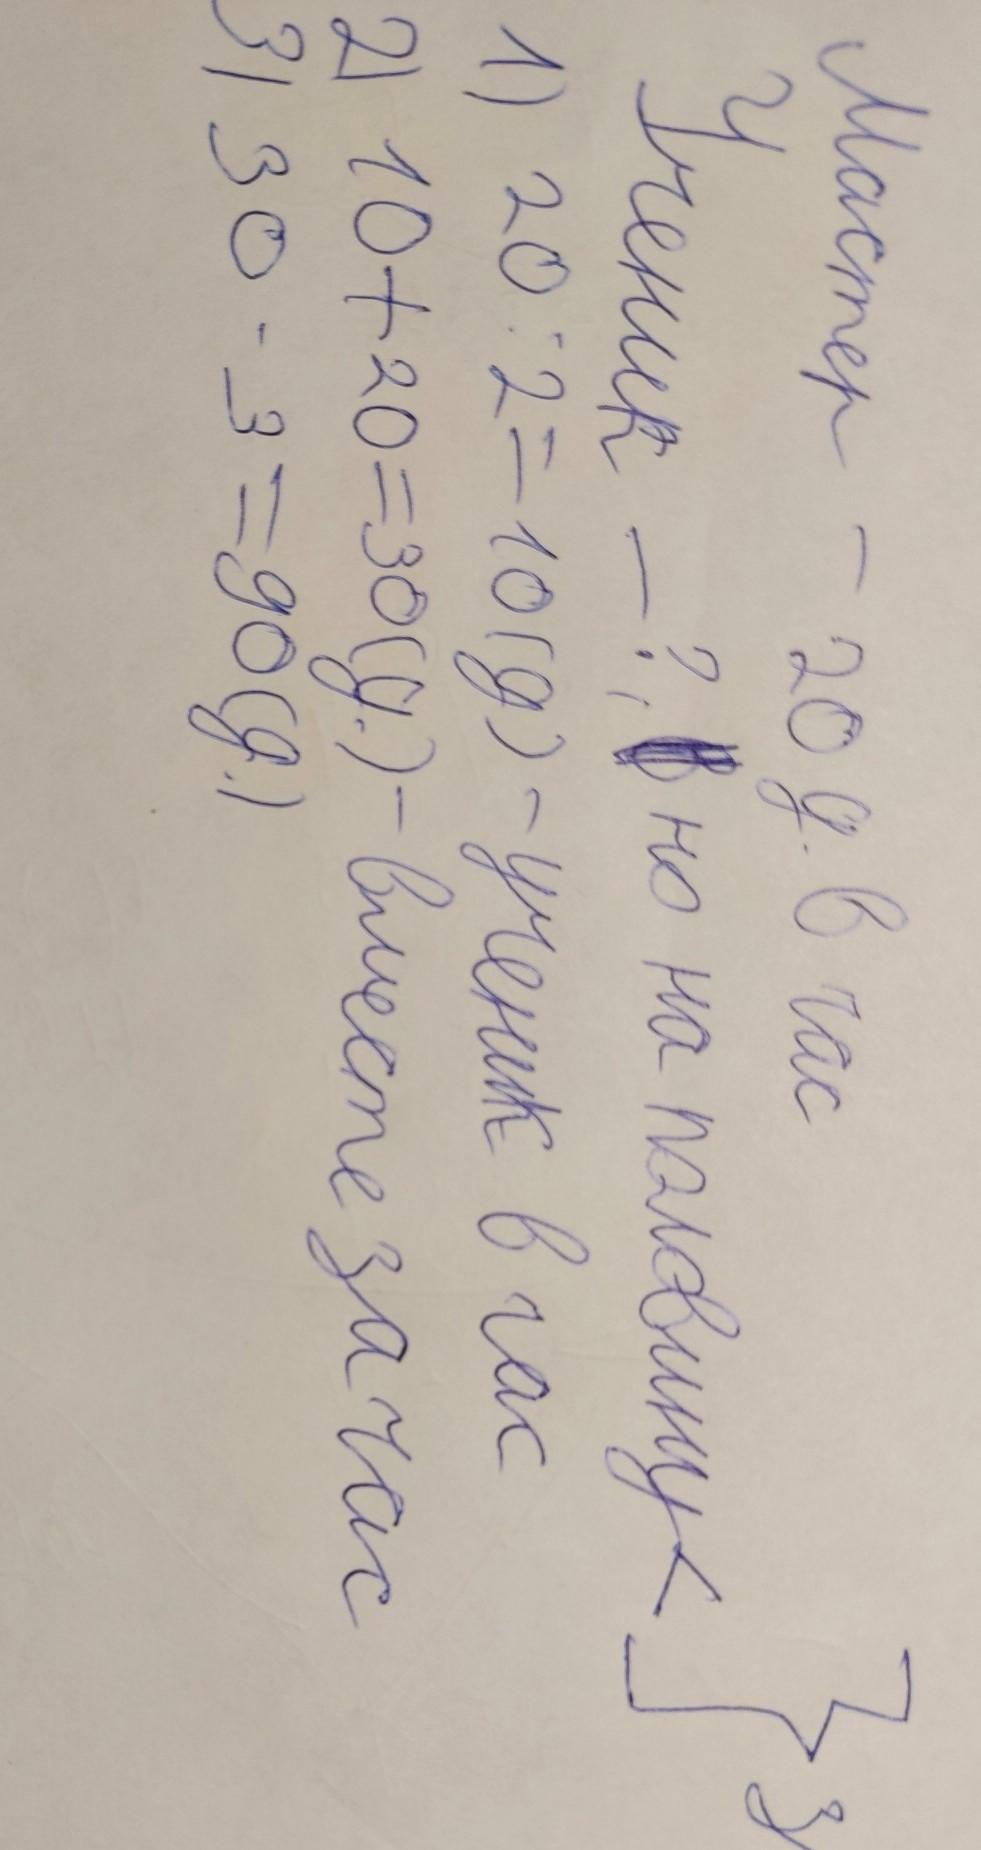 Мастер - 20 д. в час
Ученик - ?, но на половину < } 3
1) 20 : 2 = 10 (д) - ученик в час
2) 10 + 20 = 30 (д.) - вместе за час
3) 30 · 3 = 90 (д.)